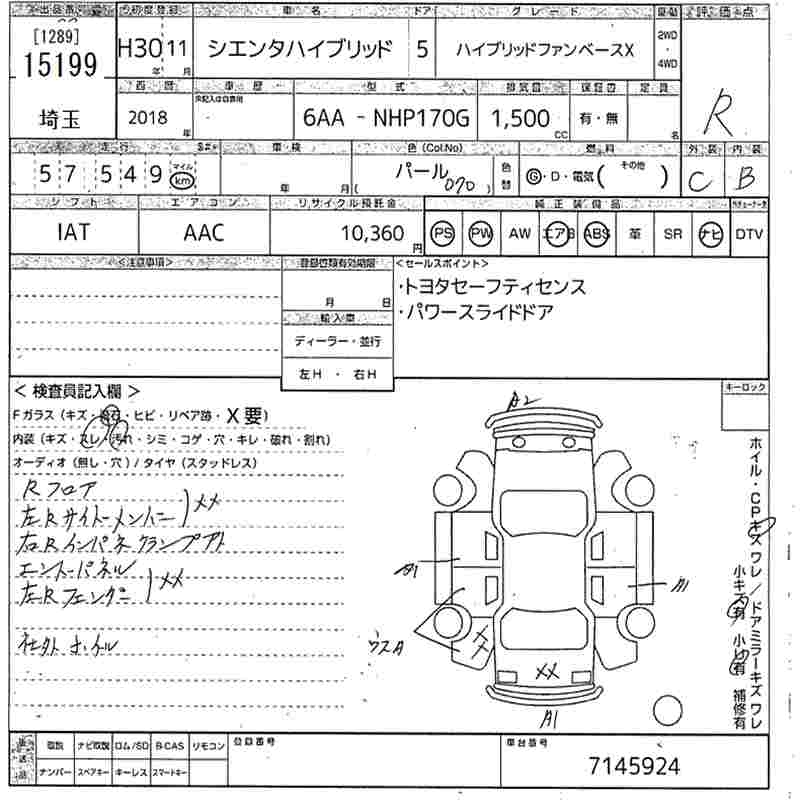 出品番号 初度登録 車名 ドア グレード 駆動 評価点
[1289]
15199
H30 11 シエンタハイブリッド 5 ハイブリッドファンベースX 2WD・4WD
年 月
西暦 車歴 型式 排気量 保証書 定員
未記入は自家用
埼玉 2018 年 6AA - NHP170G 1,500 CC 有・無 名 R
走行 車・検 色 (Col.No) 燃料 外装 内装
57,549 マイル km 年 月 パール 070 色替 G・D・電気( その他 ) C B
シフト エアコン リサイクル預託金 純正装備品
IAT AAC 10,360 円 PS PW AW エアB ABS 革 SR ナビ DTV
<注意事項> 登録書類有効期限 <セールスポイント>
月 日
・トヨタセーフティセンス
・パワースライドドア
輸入車
ディーラー・並行
左H ・ 右H
<検査員記入欄> キーロック
Fガラス (キズ・飛石・ヒビ・リペア跡・X要)
内装 (キズ・スレ・汚れ・シミ・コゲ・穴・キレ・破れ・割れ)
オーディオ (無し・穴) / タイヤ (スタッドレス)
Rフロア
左Rサイドメンバー XX
右Rインパネクランプアト
エンドパネル
左Rフェンダー XX
社外ホイル
A2
A1
A1
ウスA
XX
XX
A1
ホイル・CPキズワレ/ドアミラーキズワレ
小キズ有 小凹有 補修有
後送品 取説 ナビ取説 ロム/SD B-CAS リモコン 登録番号 車台番号
ナンバー スペアキー キーレス スマートキー 7145924